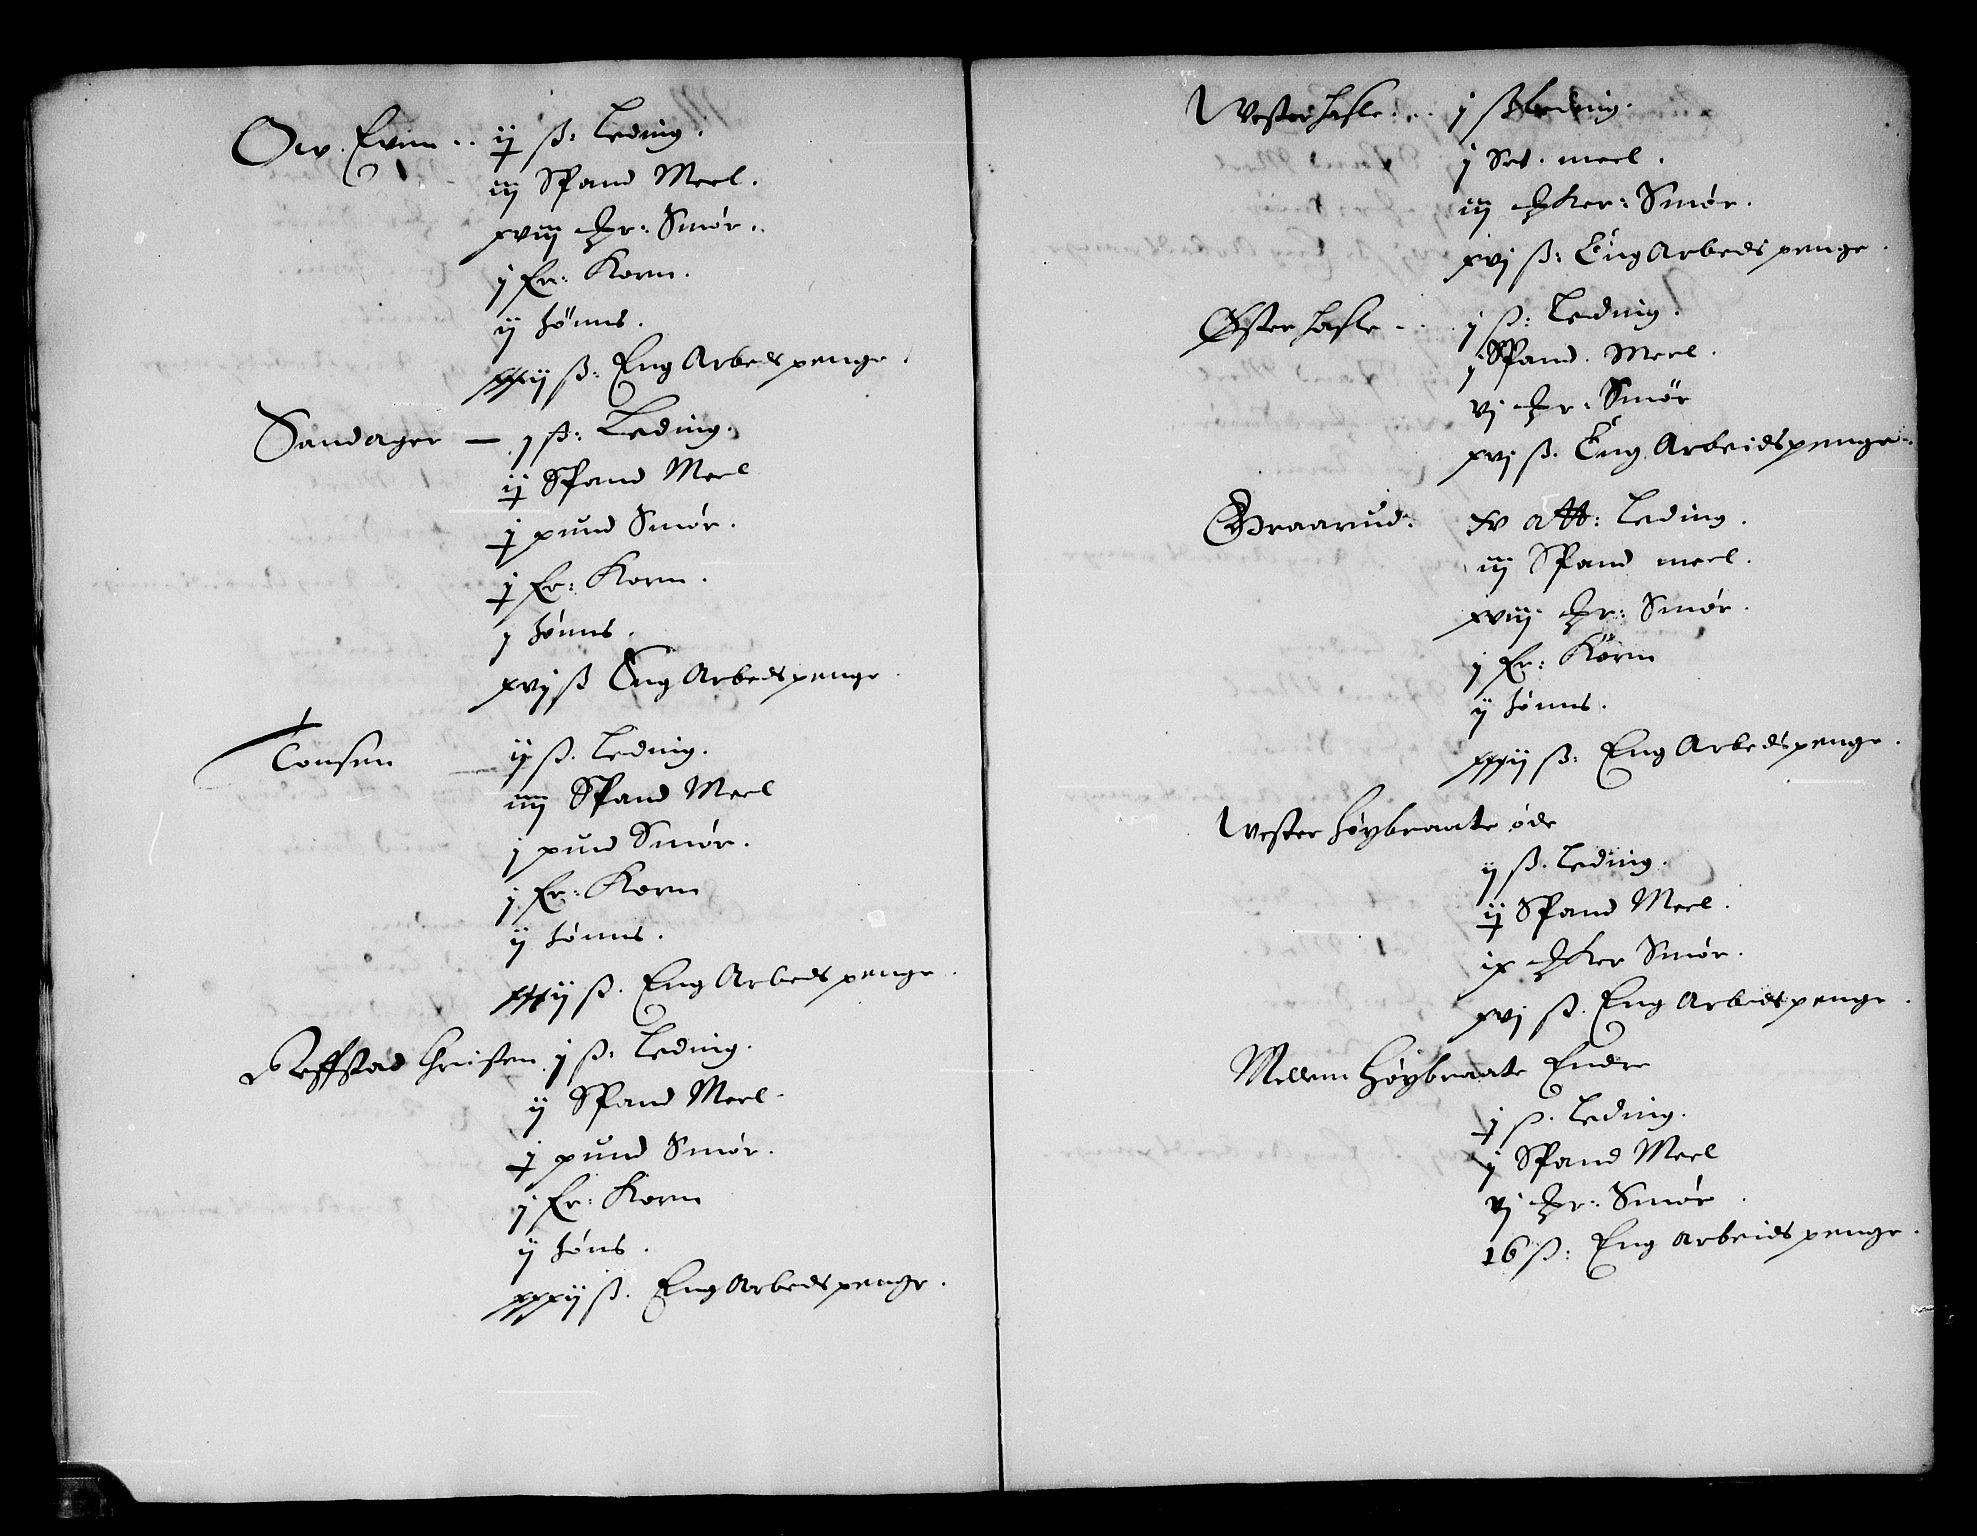 Ow. Evin .. ij ß: Leding.
iij Spand Meel.
xviij mr: Smør.
j Fr: Korn.
ij hønns.
xxxij ß: Eng Arbeds penge.
Sandager — j ß: Leding.
ij Spand Meel
j pund Smør.
j Fr: Korn.
j hønns.
xvj ß Eng Arbeds penge.
Tonsen ij ß. Leding.
iiij Spand Meel
j pund Smør.
j Fr: Korn
ij hønns.
xxxij ß. Eng Arbeds penge.
Refstad Christen j ß: Leding.
ij Spand Meel.
j pund Smør.
j Fr: Korn
ij høns.
xxxij ß. Eng Arbeds penge.
Wester hasle .. j ß Leding.
j Set. meel.
iij mker: Smør.
xvj ß: Eng Arbeds penge.
Øster hasle - . j ß: Leding.
j Spand. Meel.
vj mr: Smør
xvj ß. Eng Arbeids penge.
Braarud: xv alb: Leding.
iij Spand meel.
xviij mr: Smør.
j Fr: Korn
ij hønns.
xxxij ß: Eng Arbeds penge.
Wester høybraate øde
ij ß. Leding.
ij Spand Meel.
ix mker Smør.
xvj ß. Eng Arbeds penge.
Mellem Høybraate Endre
j ß. Leding.
j Spand Meel
vj mr: Smør.
16 ß: Eng Arbeids penge.